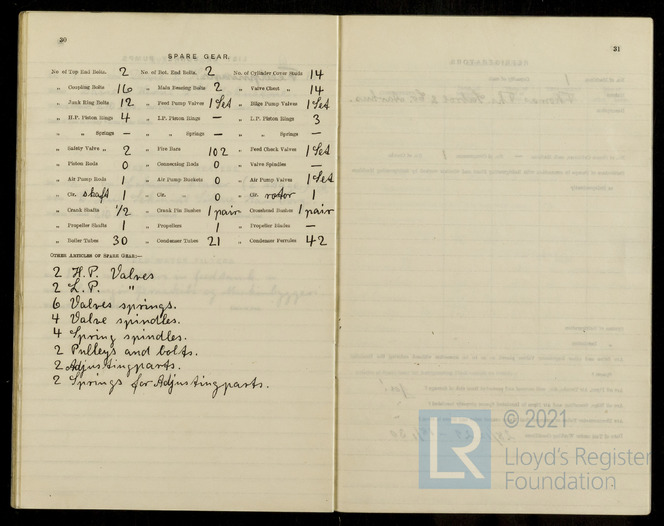 30
SPARE GEAR.
No of Top End Bolts. 2 No of Bot. End Bolts. 2 No. of Cylinder Cover Studs 14
„ Coupling Bolts 16 „ Main Bearing Bolts 2 „ Valve Chest „ 14
„ Junk Ring Bolts 12 „ Feed Pump Valves 1 Set „ Bilge Pump Valves 1 Set
„ H.P. Piston Rings 4 „ I.P. Piston Rings — „ L.P. Piston Rings 3
„ „ Springs — „ „ Springs — „ „ Springs —
„ Safety Valve „ 2 „ Fire Bars 102 „ Feed Check Valves 1 Set
„ Piston Rods 0 „ Connecting Rods 0 „ Valve Spindles —
„ Air Pump Rods 1 „ Air Pump Buckets 0 „ Air Pump Valves 1 Set
„ Cir. shaft 1 „ Cir. „ 0 „ Cir. rotor 1
„ Crank Shafts 1/2 „ Crank Pin Bushes 1 pair „ Crosshead Bushes 1 pair
„ Propeller Shafts 1 „ Propellers 1 „ Propeller Blades —
„ Boiler Tubes 30 „ Condenser Tubes 21 „ Condenser Ferrules 42
OTHER ARTICLES OF SPARE GEAR:—
2 H.P. Valves
2 L.P. "
6 Valves springs.
4 Valve spindles.
4 Spring spindles.
2 Pulleys and bolts.
2 Adjusting parts.
2 Springs for Adjusting parts.
31
LR
© 2021
Lloyd's Register
Foundation